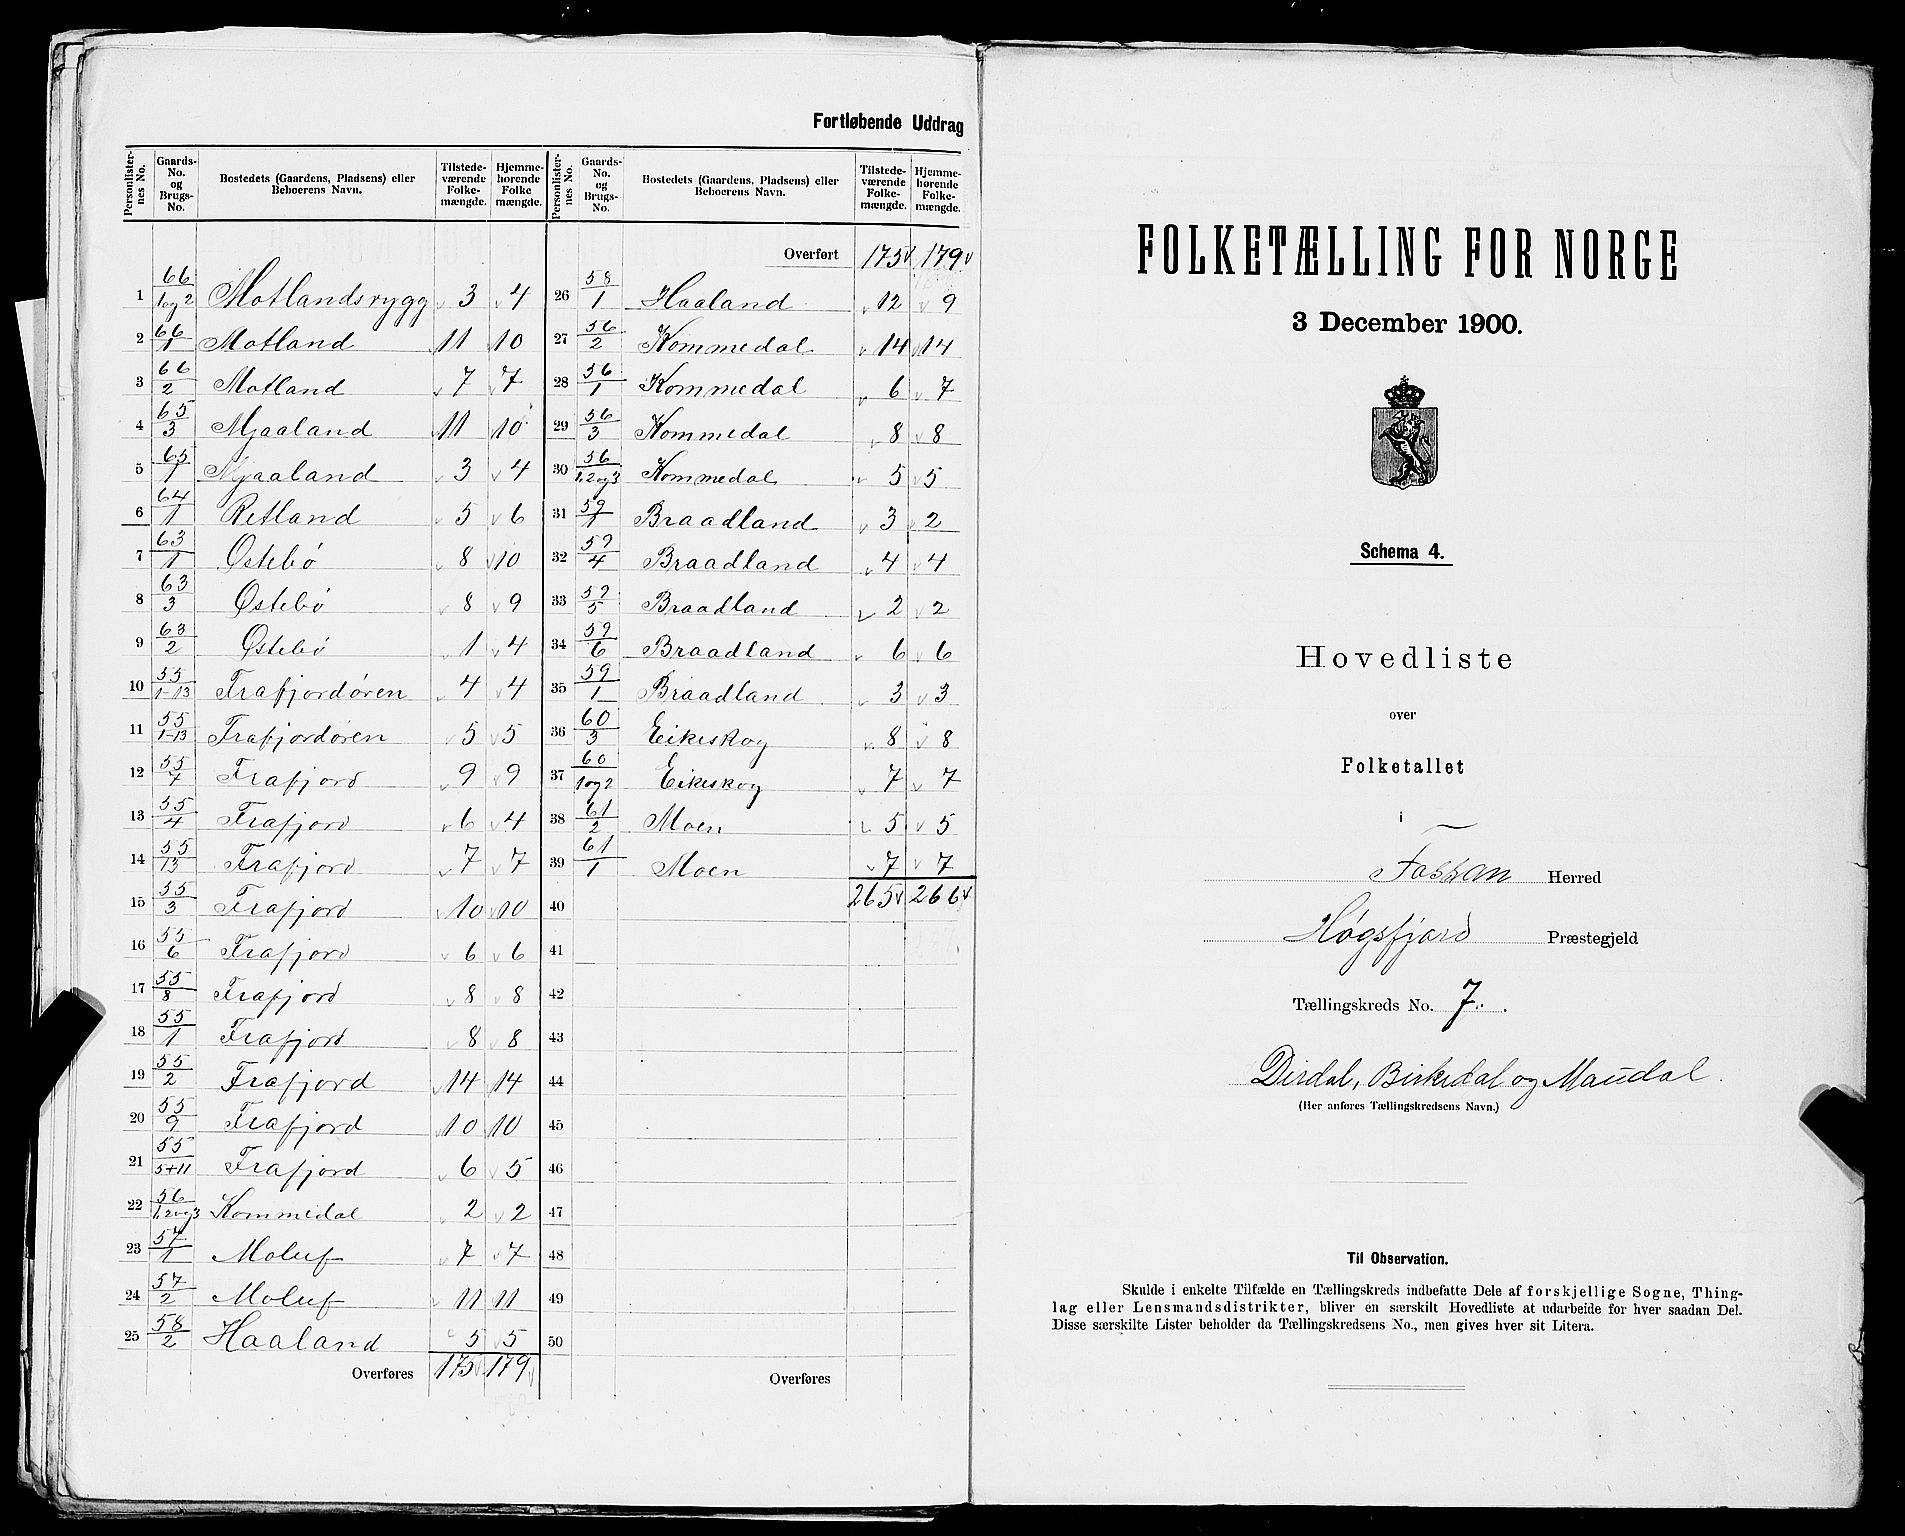 Fortløbende Uddrag
Personlister-nes No. | Gaards-No. og Brugs-No. | Bostedets (Gaardens, Pladsens) eller Beboerens Navn. | Tilstede-værende Folke-mængde. | Hjemme-hørende Folke mængde.
1 | 66/1og2 | Motlandsrygg | 3 | 4
2 | 66/1 | Motland | 11 | 10
3 | 66/2 | Motland | 7 | 7
4 | 65/3 | Mjaaland | 11 | 10
5 | 65/1 | Mjaaland | 3 | 4
6 | 64/1 | Retland | 5 | 6
7 | 63/1 | Østebø | 8 | 10
8 | 63/3 | Østebø | 8 | 9
9 | 63/2 | Østebø | 1 | 4
10 | 55/1-13 | Frafjordøren | 4 | 4
11 | 55/1-13 | Frafjordøren | 5 | 5
12 | 55/7 | Frafjord | 9 | 9
13 | 55/4 | Frafjord | 6 | 4
14 | 55/13 | Frafjord | 7 | 7
15 | 55/3 | Frafjord | 10 | 10
16 | 55/6 | Frafjord | 6 | 6
17 | 55/8 | Frafjord | 8 | 8
18 | 55/1 | Frafjord | 8 | 8
19 | 55/2 | Frafjord | 14 | 14
20 | 55/9 | Frafjord | 10 | 10
21 | 55/5+11 | Frafjord | 6 | 5
22 | 56/1,2og3 | Kommedal | 2 | 2
23 | 57/1 | Moluf | 7 | 7
24 | 57/2 | Moluf | 11 | 11
25 | 58/2 | Haaland | 5 | 5
Overføres 175 179
Personlister-nes No. | Gaards-No. og Brugs-No. | Bostedets (Gaardens, Pladsens) eller Beboerens Navn. | Tilstede-værende Folke-mængde. | Hjemme-hørende Folke-mængde.
Overført 175 179
26 | 58/1 | Haaland | 12 | 9
27 | 56/2 | Kommedal | 14 | 14
28 | 56/1 | Kommedal | 6 | 7
29 | 56/3 | Kommedal | 8 | 8
30 | 56/1,2og3 | Kommedal | 5 | 5
31 | 59/1 | Braadland | 3 | 2
32 | 59/4 | Braadland | 4 | 4
33 | 59/5 | Braadland | 2 | 2
34 | 59/6 | Braadland | 6 | 6
35 | 59/1 | Braadland | 3 | 3
36 | 60/3 | Eikeskog | 8 | 8
37 | 60/1og2 | Eikeskog | 7 | 7
38 | 61/2 | Moen | 5 | 5
39 | 61/1 | Moen | 7 | 7
40 265 266
41
42
43
44
45
46
47
48
49
50
Overføres
FOLKETÆLLING FOR NORGE
3 December 1900.
Schema 4.
Hovedliste
over
Folketallet
i
Fossan Herred
Høgsfjord Præstegjeld
Tællingskreds No. 7.
Dirdal, Birkedal og Maudal.
(Her anføres Tællingskredsens Navn.)
Til Observation.
Skulde i enkelte Tilfælde en Tællingskreds indbefatte Dele af forskjellige Sogne, Thing-
lag eller Lensmandsdistrikter, bliver en særskilt Hovedliste at udarbeide for hver saadan Del.
Disse særskilte Lister beholder da Tællingskredsens No., men gives hver sit Litera.